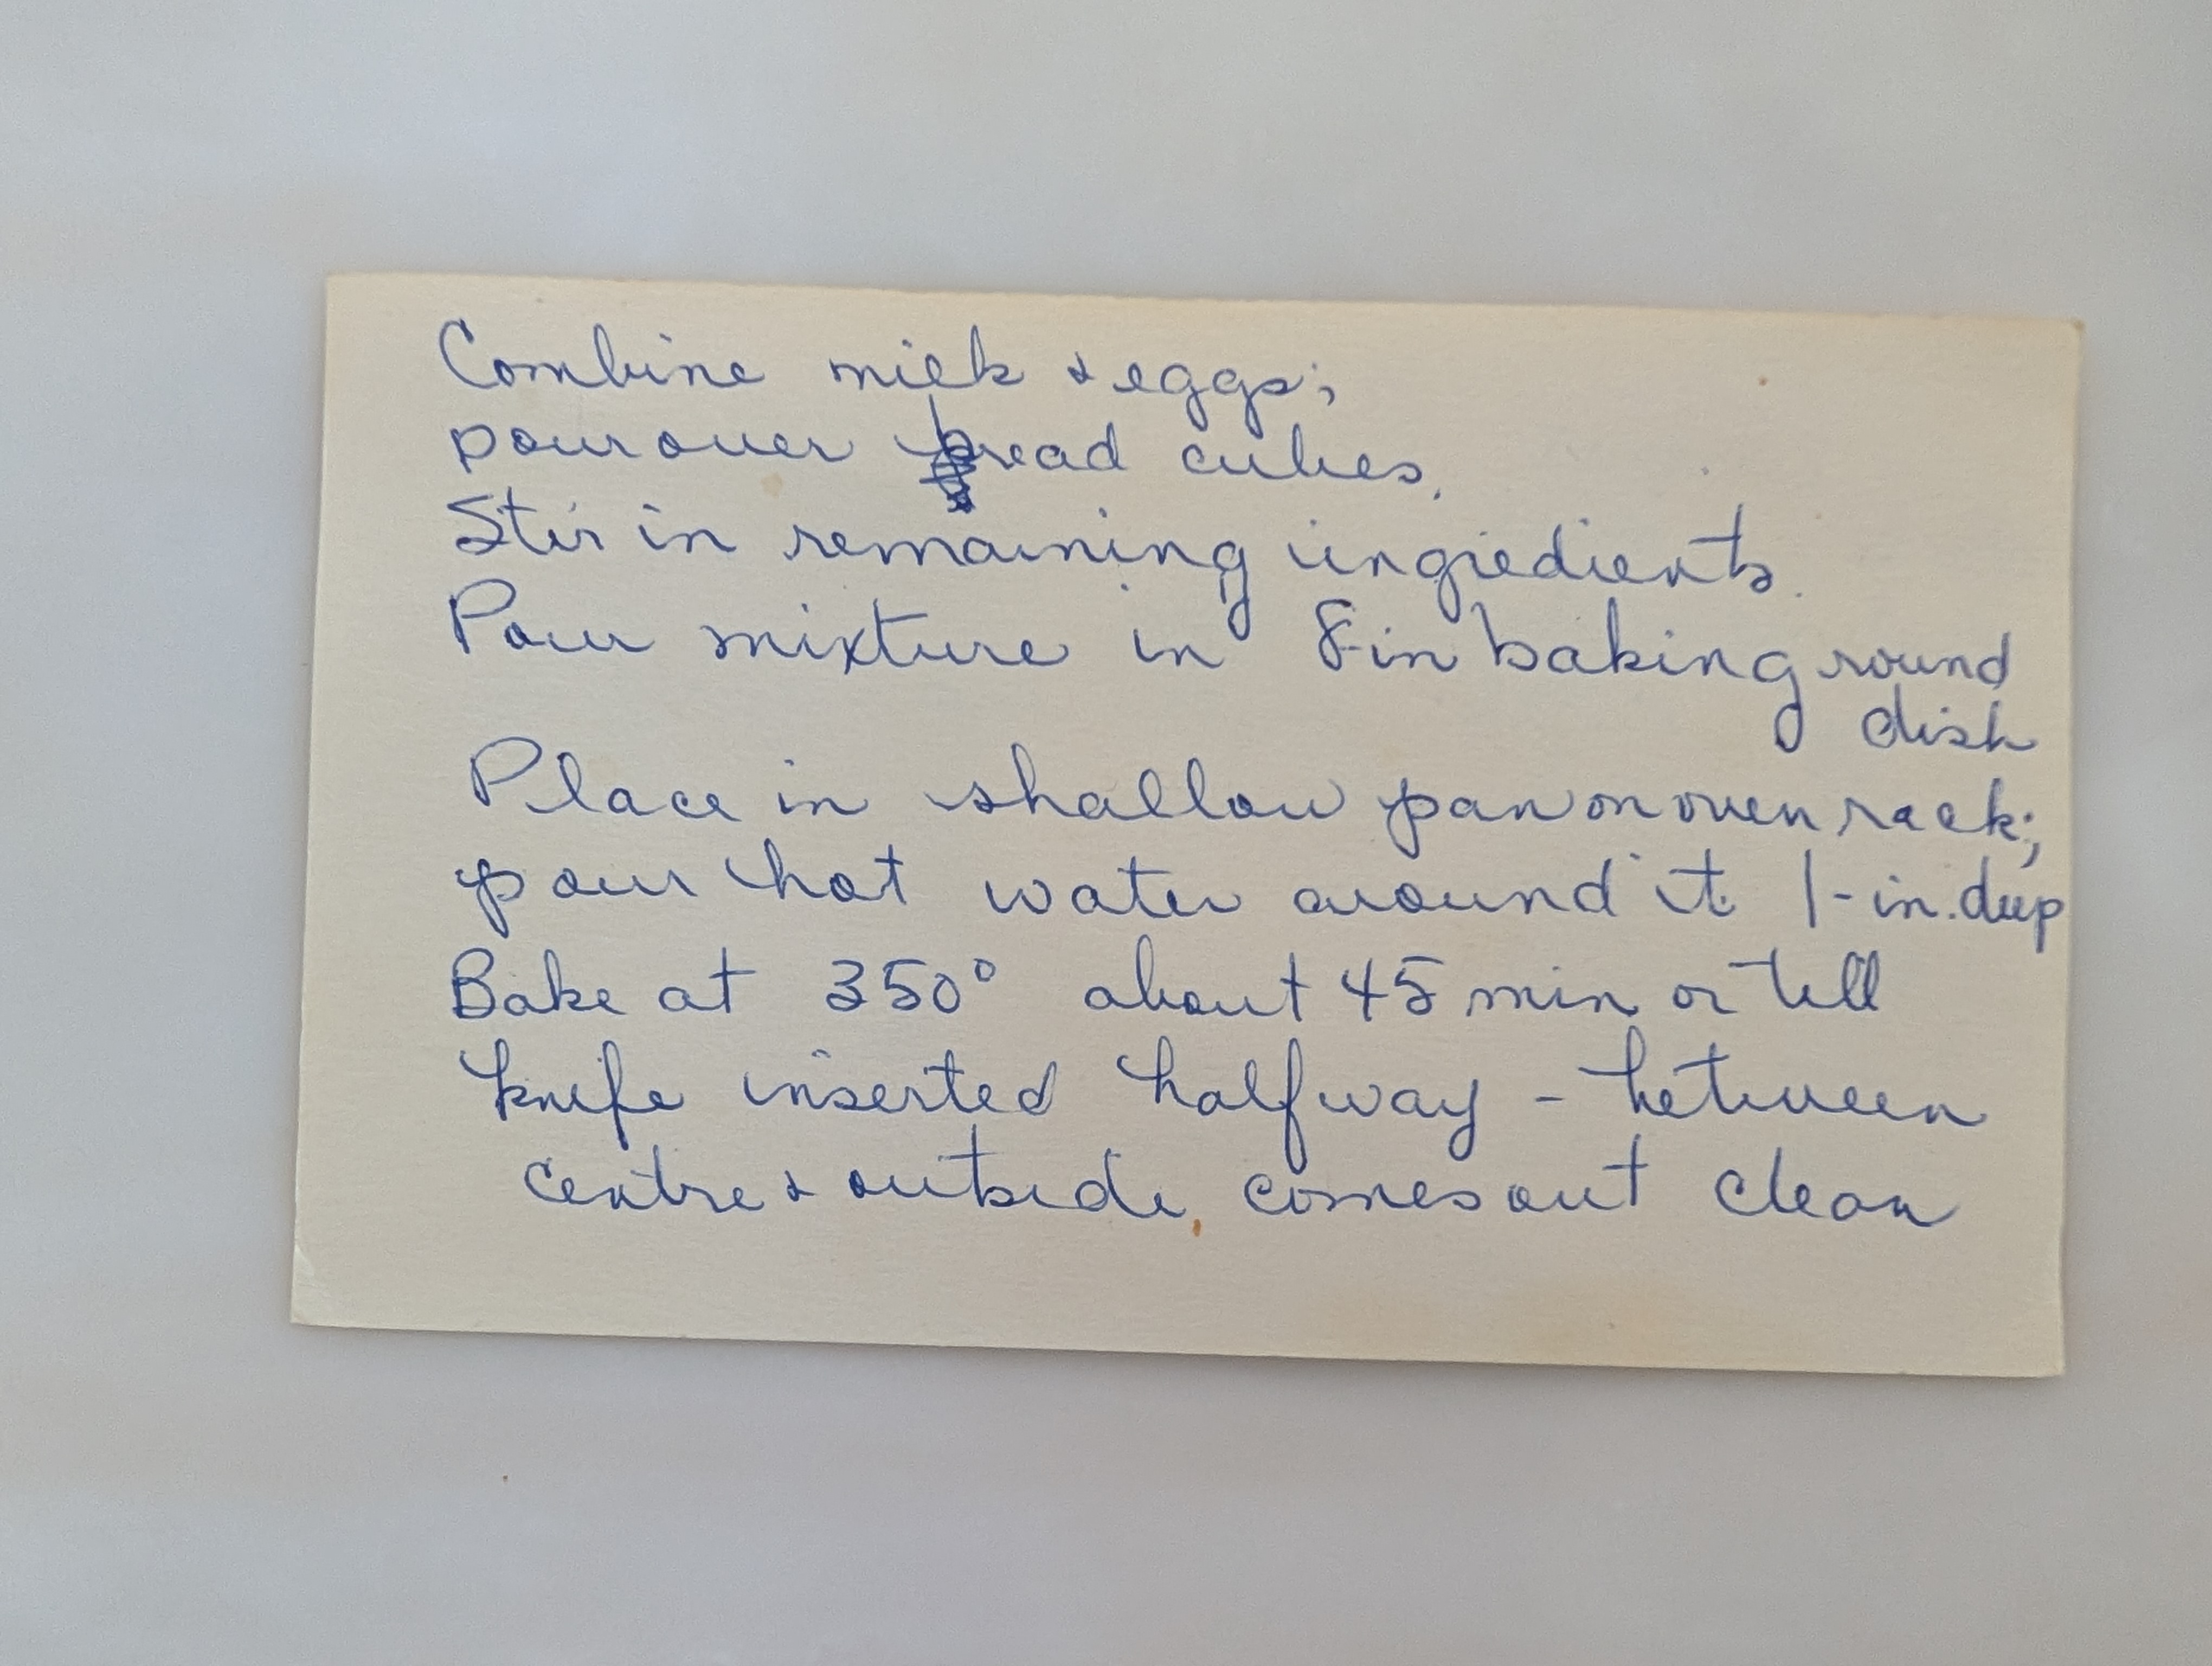 Combine milk & eggs;
pour over bread cubes.
Stir in remaining ingredients.
Pour mixture in 8-in baking round
dish
Place in shallow pan on oven rack;
pour hot water around it 1-in. deep
Bake at 350° about 45 min or till
knife inserted halfway - between
centre & outside, comes out clean